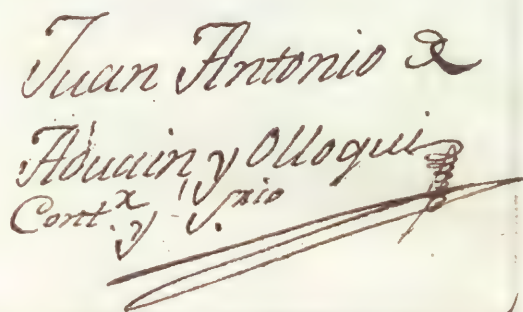 Juan Antonio de
Aduain y Olloqui
Cont.x y Ynio